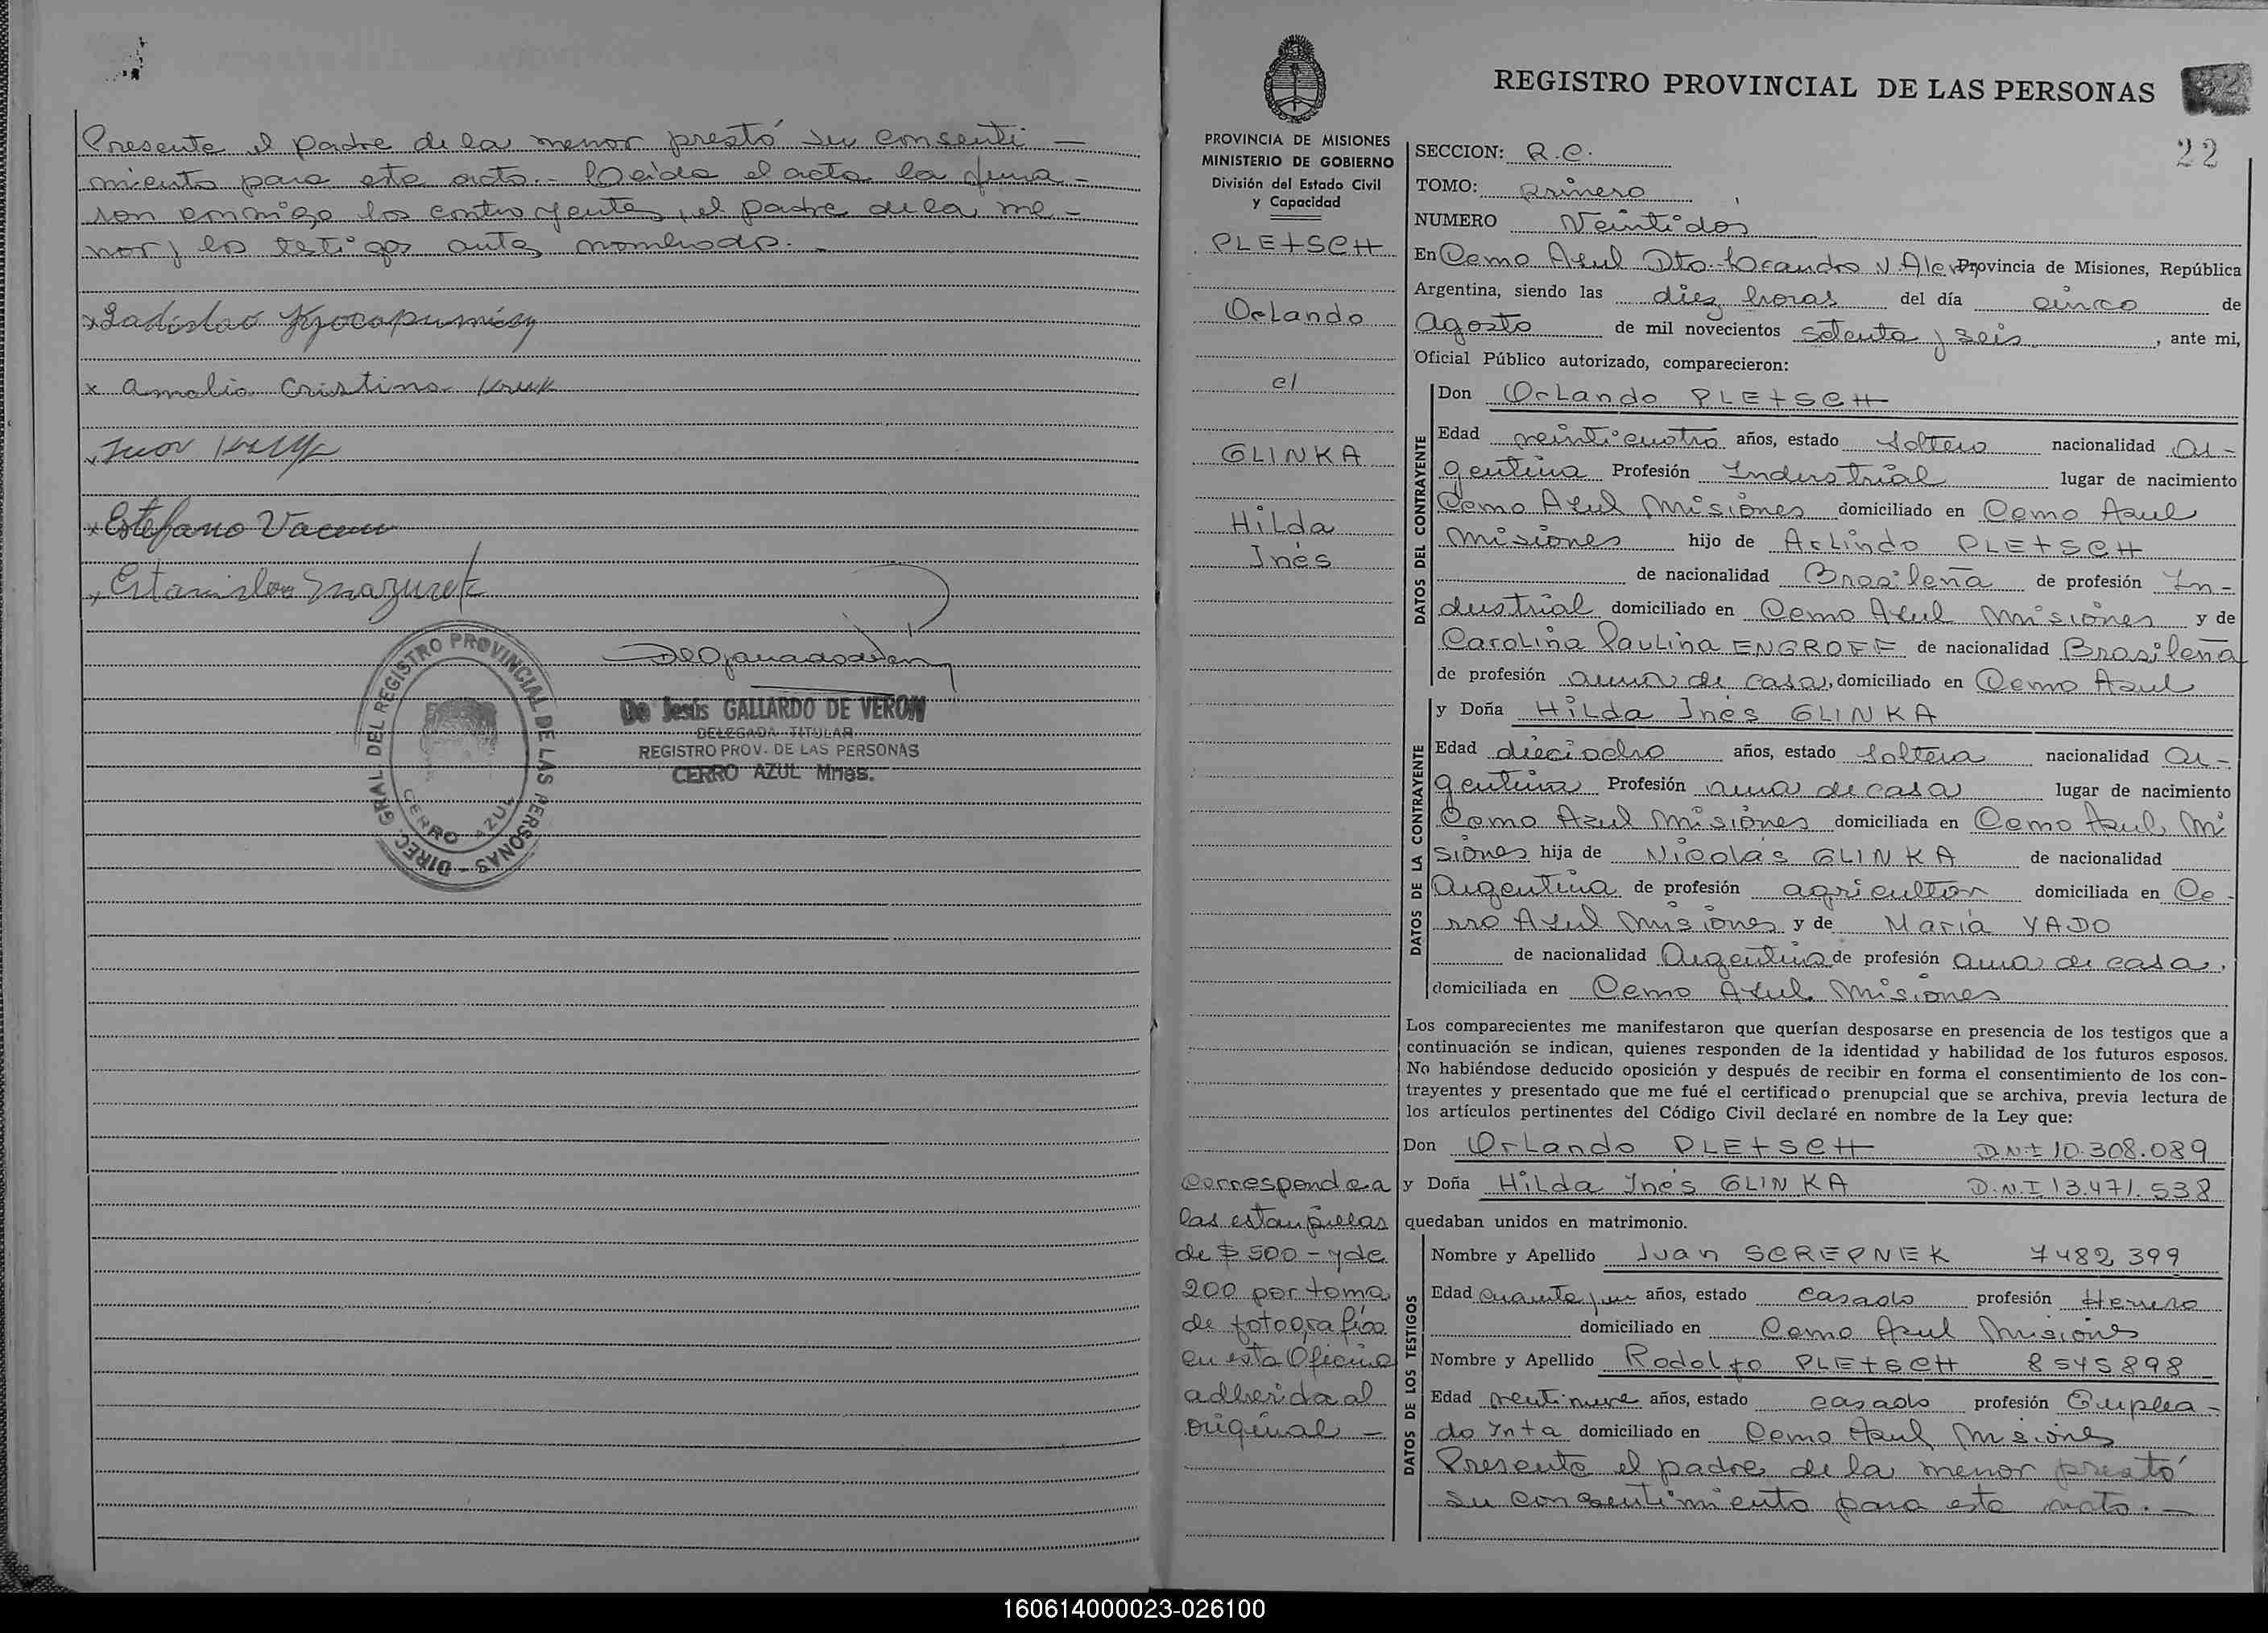 Presente el padre de la menor prestó su consenti-
miento para este acto.- Leida el acta la firma-
ron conmigo los contrayentes, el padre de la me-
nor y los testigos antes nombrados.-
x Ladislao
x Amalia Cristina Kruk
x Juan
x Estefano
x Estanislao Mazurek
De Jesús GALLARDO DE VERON
DELEGADA TITULAR
REGISTRO PROV. DE LAS PERSONAS
CERRO AZUL Mnes.
DIREC. GRAL. DEL REGISTRO PROVINCIAL DE LAS PERSONAS
CERRO AZUL
REGISTRO PROVINCIAL DE LAS PERSONAS
22
PROVINCIA DE MISIONES
MINISTERIO DE GOBIERNO
División del Estado Civil
y Capacidad
PLETSCH
Orlando
c/
GLINKA
Hilda
Inés
Corresponde a
las estampillas
de $ 500- y de
200 por toma
de fotografía
en esta Oficina
adherida al
original -
SECCION: R.C.
TOMO: Primero
NUMERO Veintidós
En Cerro Azul Dto. Leandro N. Alem Provincia de Misiones, República
Argentina, siendo las diez horas del día cinco de
Agosto de mil novecientos setenta y seis, ante mi,
Oficial Público autorizado, comparecieron:
DATOS DEL CONTRAYENTE
Don Orlando PLETSCH
Edad veinticuatro años, estado Soltero nacionalidad Ar-
gentina Profesión Industrial lugar de nacimiento
Cerro Azul Misiones domiciliado en Cerro Azul
Misiones hijo de Arlindo PLETSCH
de nacionalidad Brasileña de profesión In-
dustrial domiciliado en Cerro Azul Misiones y de
Carolina Paulina ENGROFF de nacionalidad Brasileña
de profesión ama de casa, domiciliado en Cerro Azul
DATOS DE LA CONTRAYENTE
y Doña Hilda Inés GLINKA
Edad dieciocho años, estado Soltera nacionalidad Ar-
gentina Profesión ama de casa lugar de nacimiento
Cerro Azul Misiones domiciliada en Cerro Azul Mi
siones hija de Nicolás GLINKA de nacionalidad
Argentina de profesión agricultor domiciliada en Ce-
rro Azul Misiones y de María YADO
de nacionalidad Argentina de profesión ama de casa,
domiciliada en Cerro Azul. Misiones
Los comparecientes me manifestaron que querían desposarse en presencia de los testigos que a
continuación se indican, quienes responden de la identidad y habilidad de los futuros esposos.
No habiéndose deducido oposición y después de recibir en forma el consentimiento de los con-
trayentes y presentado que me fué el certificado prenupcial que se archiva, previa lectura de
los artículos pertinentes del Código Civil declaré en nombre de la Ley que:
Don Orlando PLETSCH D.N.I 10.308.089
y Doña Hilda Inés GLINKA D.N.I 13.471.538
quedaban unidos en matrimonio.
DATOS DE LOS TESTIGOS
Nombre y Apellido Juan SCREPNEK 7482,399
Edad cuarenta y un años, estado casado profesión Herrero
domiciliado en Cerro Azul Misiones
Nombre y Apellido Rodolfo PLETSCH 8545898
Edad veintinueve años, estado casado profesión Emplea-
do Inta domiciliado en Cerro Azul Misiones
Presente el padre de la menor prestó
su consentimiento para este acto.-
160614000023-026100